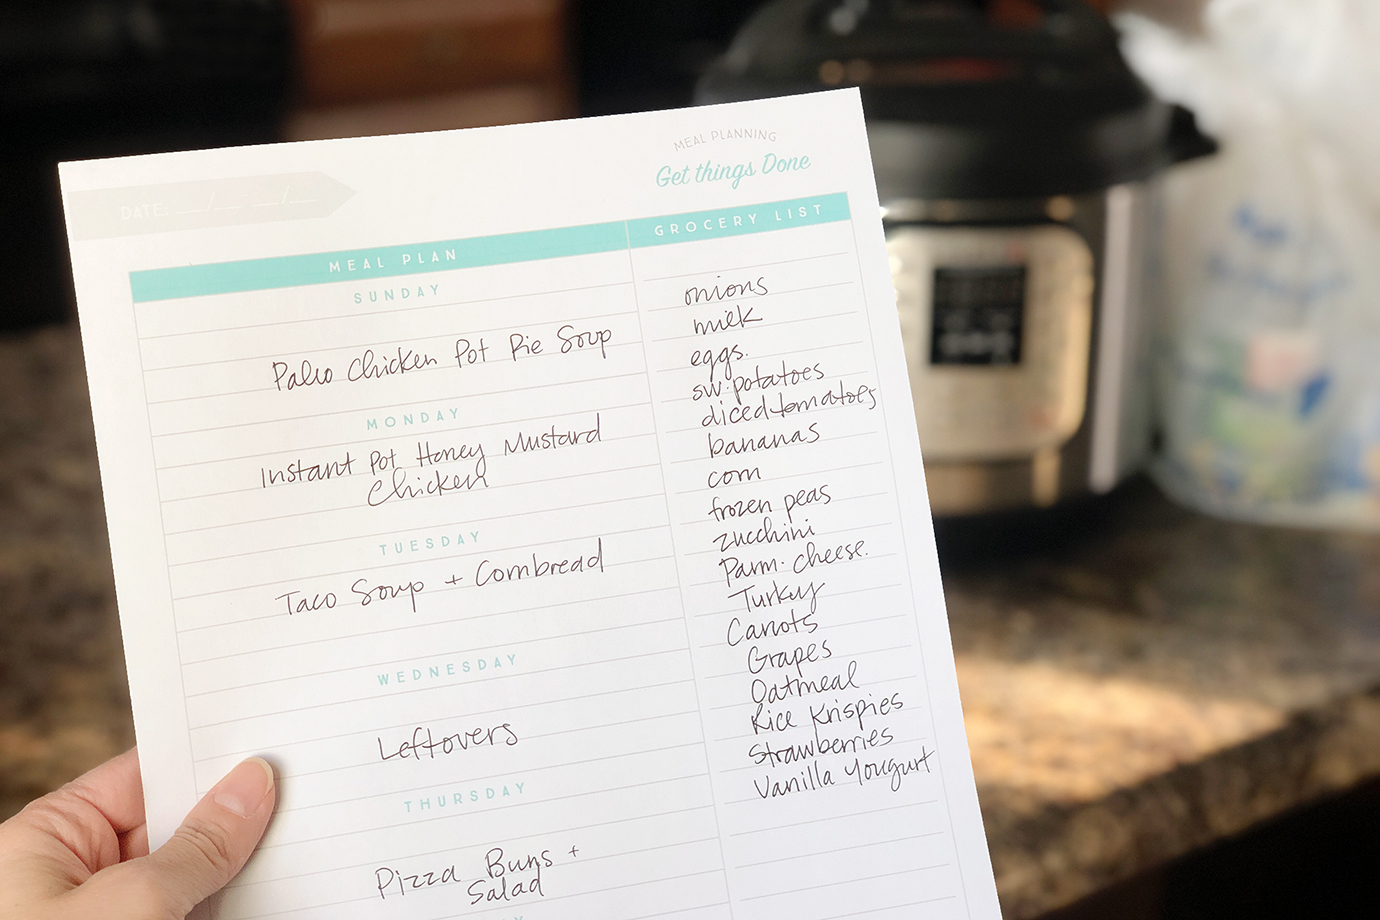 MEAL PLANNING
Get things Done
DATE: __/__-__/__
MEAL PLAN
SUNDAY
Paleo Chicken Pot Pie Soup
MONDAY
Instant Pot Honey Mustard
Chicken
TUESDAY
Taco Soup + Cornbread
WEDNESDAY
Leftovers
THURSDAY
Pizza Buns +
Salad
GROCERY LIST
onions
milk
eggs.
sw. potatoes
diced tomatoes
bananas
corn
frozen peas
zucchini
Parm. cheese.
Turkey
Carrots
Grapes
Oatmeal
Rice Krispies
Strawberries
Vanilla Yougurt